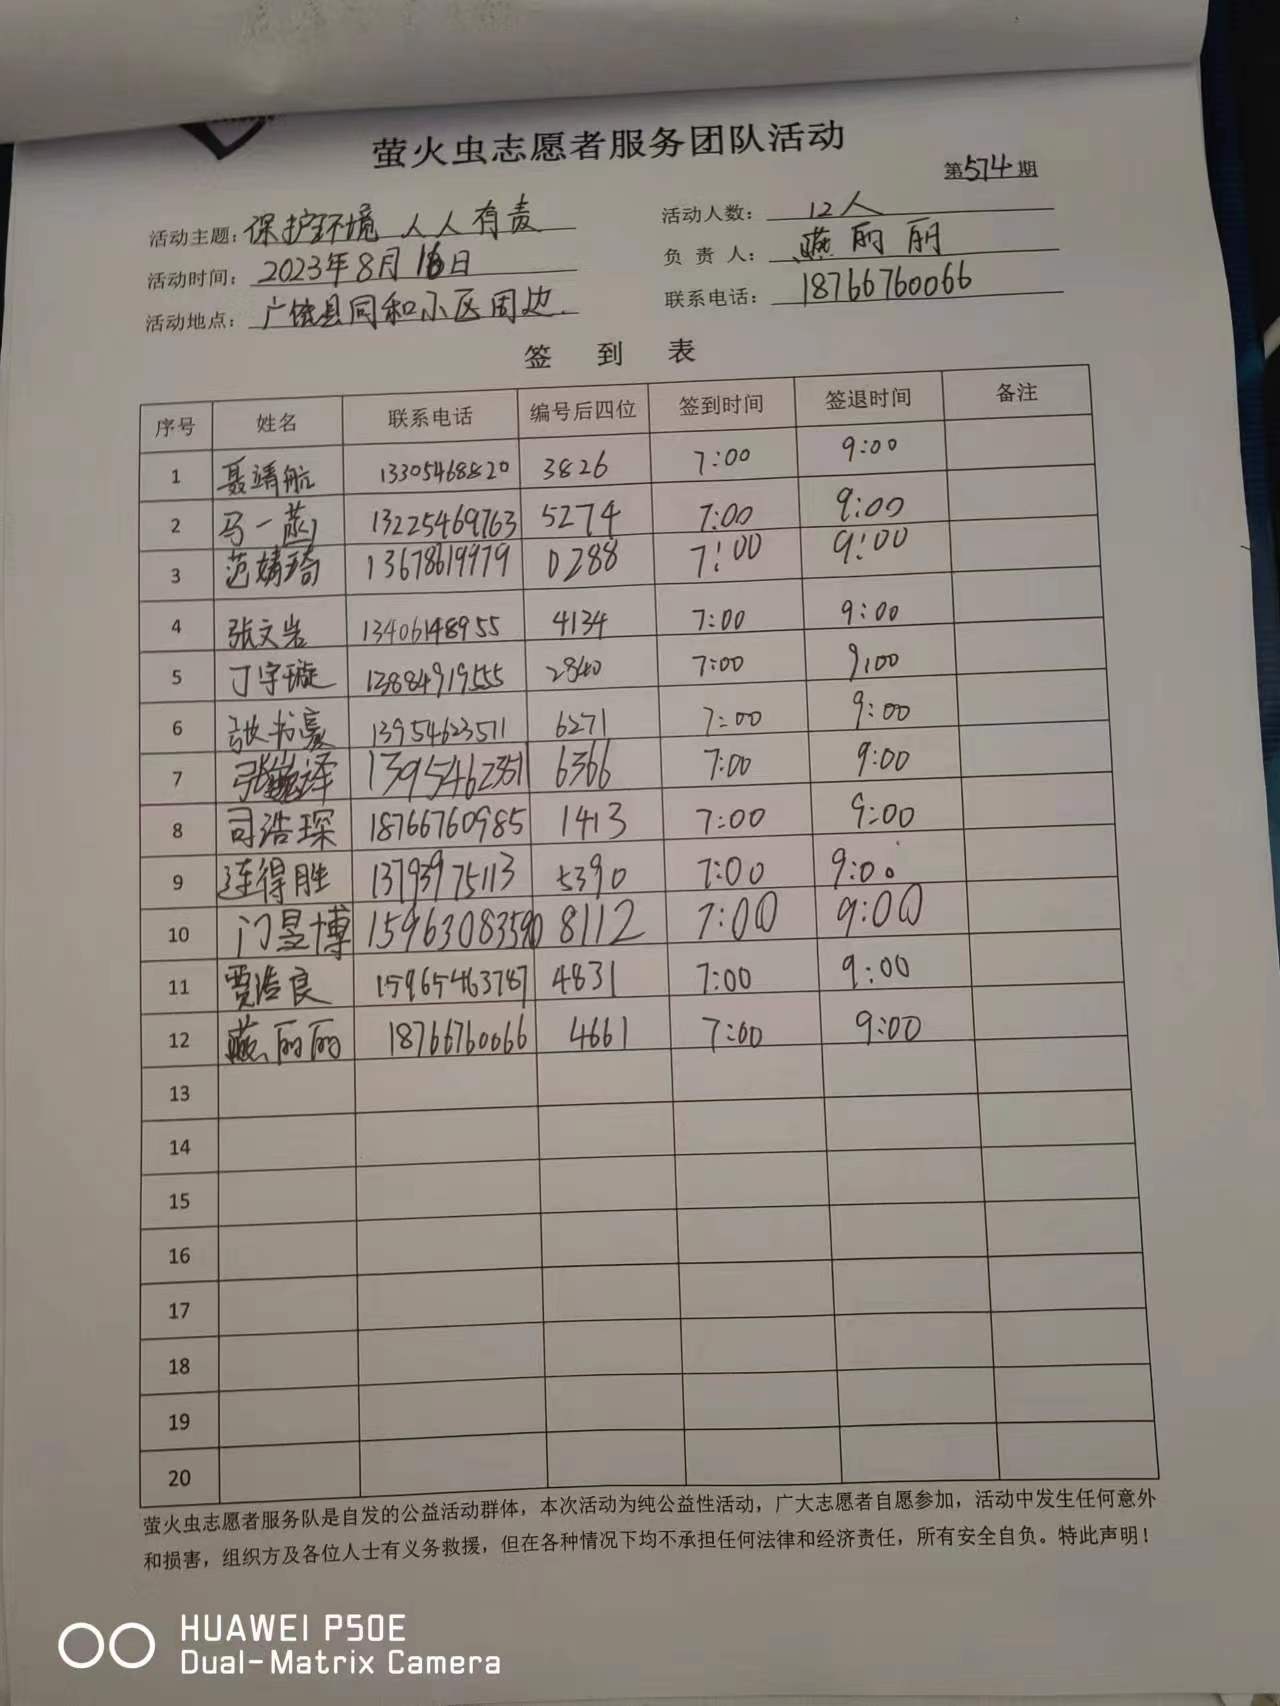 萤火虫志愿者服务团队活动
第574期
活动主题：保护环境 人人有责 活动人数：12人
活动时间：2023年8月16日 负 责 人：燕丽丽
活动地点：广饶县同和小区周边. 联系电话：18766760066
签 到 表
序号 姓名 联系电话 编号后四位 签到时间 签退时间 备注
1 聂靖航 13305468820 3826 7:00 9:00
2 马一菡 13225469763 5274 7:00 9:00
3 范婧琦 13678619979 0288 7:00 9:00
4 张文岩 13406148955 4134 7:00 9:00
5 丁宇璇 13884919555 2840 7:00 9:00
6 张书豪 13954623511 6271 7:00 9:00
7 张 泽 6366 7:00 9:00
8 司浩琛 18766760985 1413 7:00 9:00
9 连得胜 13793975113 5390 7:00 9:00
10 门昱博 15963083590 8112 7:00 9:00
11 贾浩良 15965463787 4831 7:00 9:00
12 燕丽丽 18766760066 4661 7:00 9:00
13
14
15
16
17
18
19
20
萤火虫志愿者服务队是自发的公益活动群体，本次活动为纯公益性活动，广大志愿者自愿参加，活动中发生任何意外
和损害，组织方及各位人士有义务救援，但在各种情况下均不承担任何法律和经济责任，所有安全自负。特此声明！
HUAWEI P50E
Dual-Matrix Camera